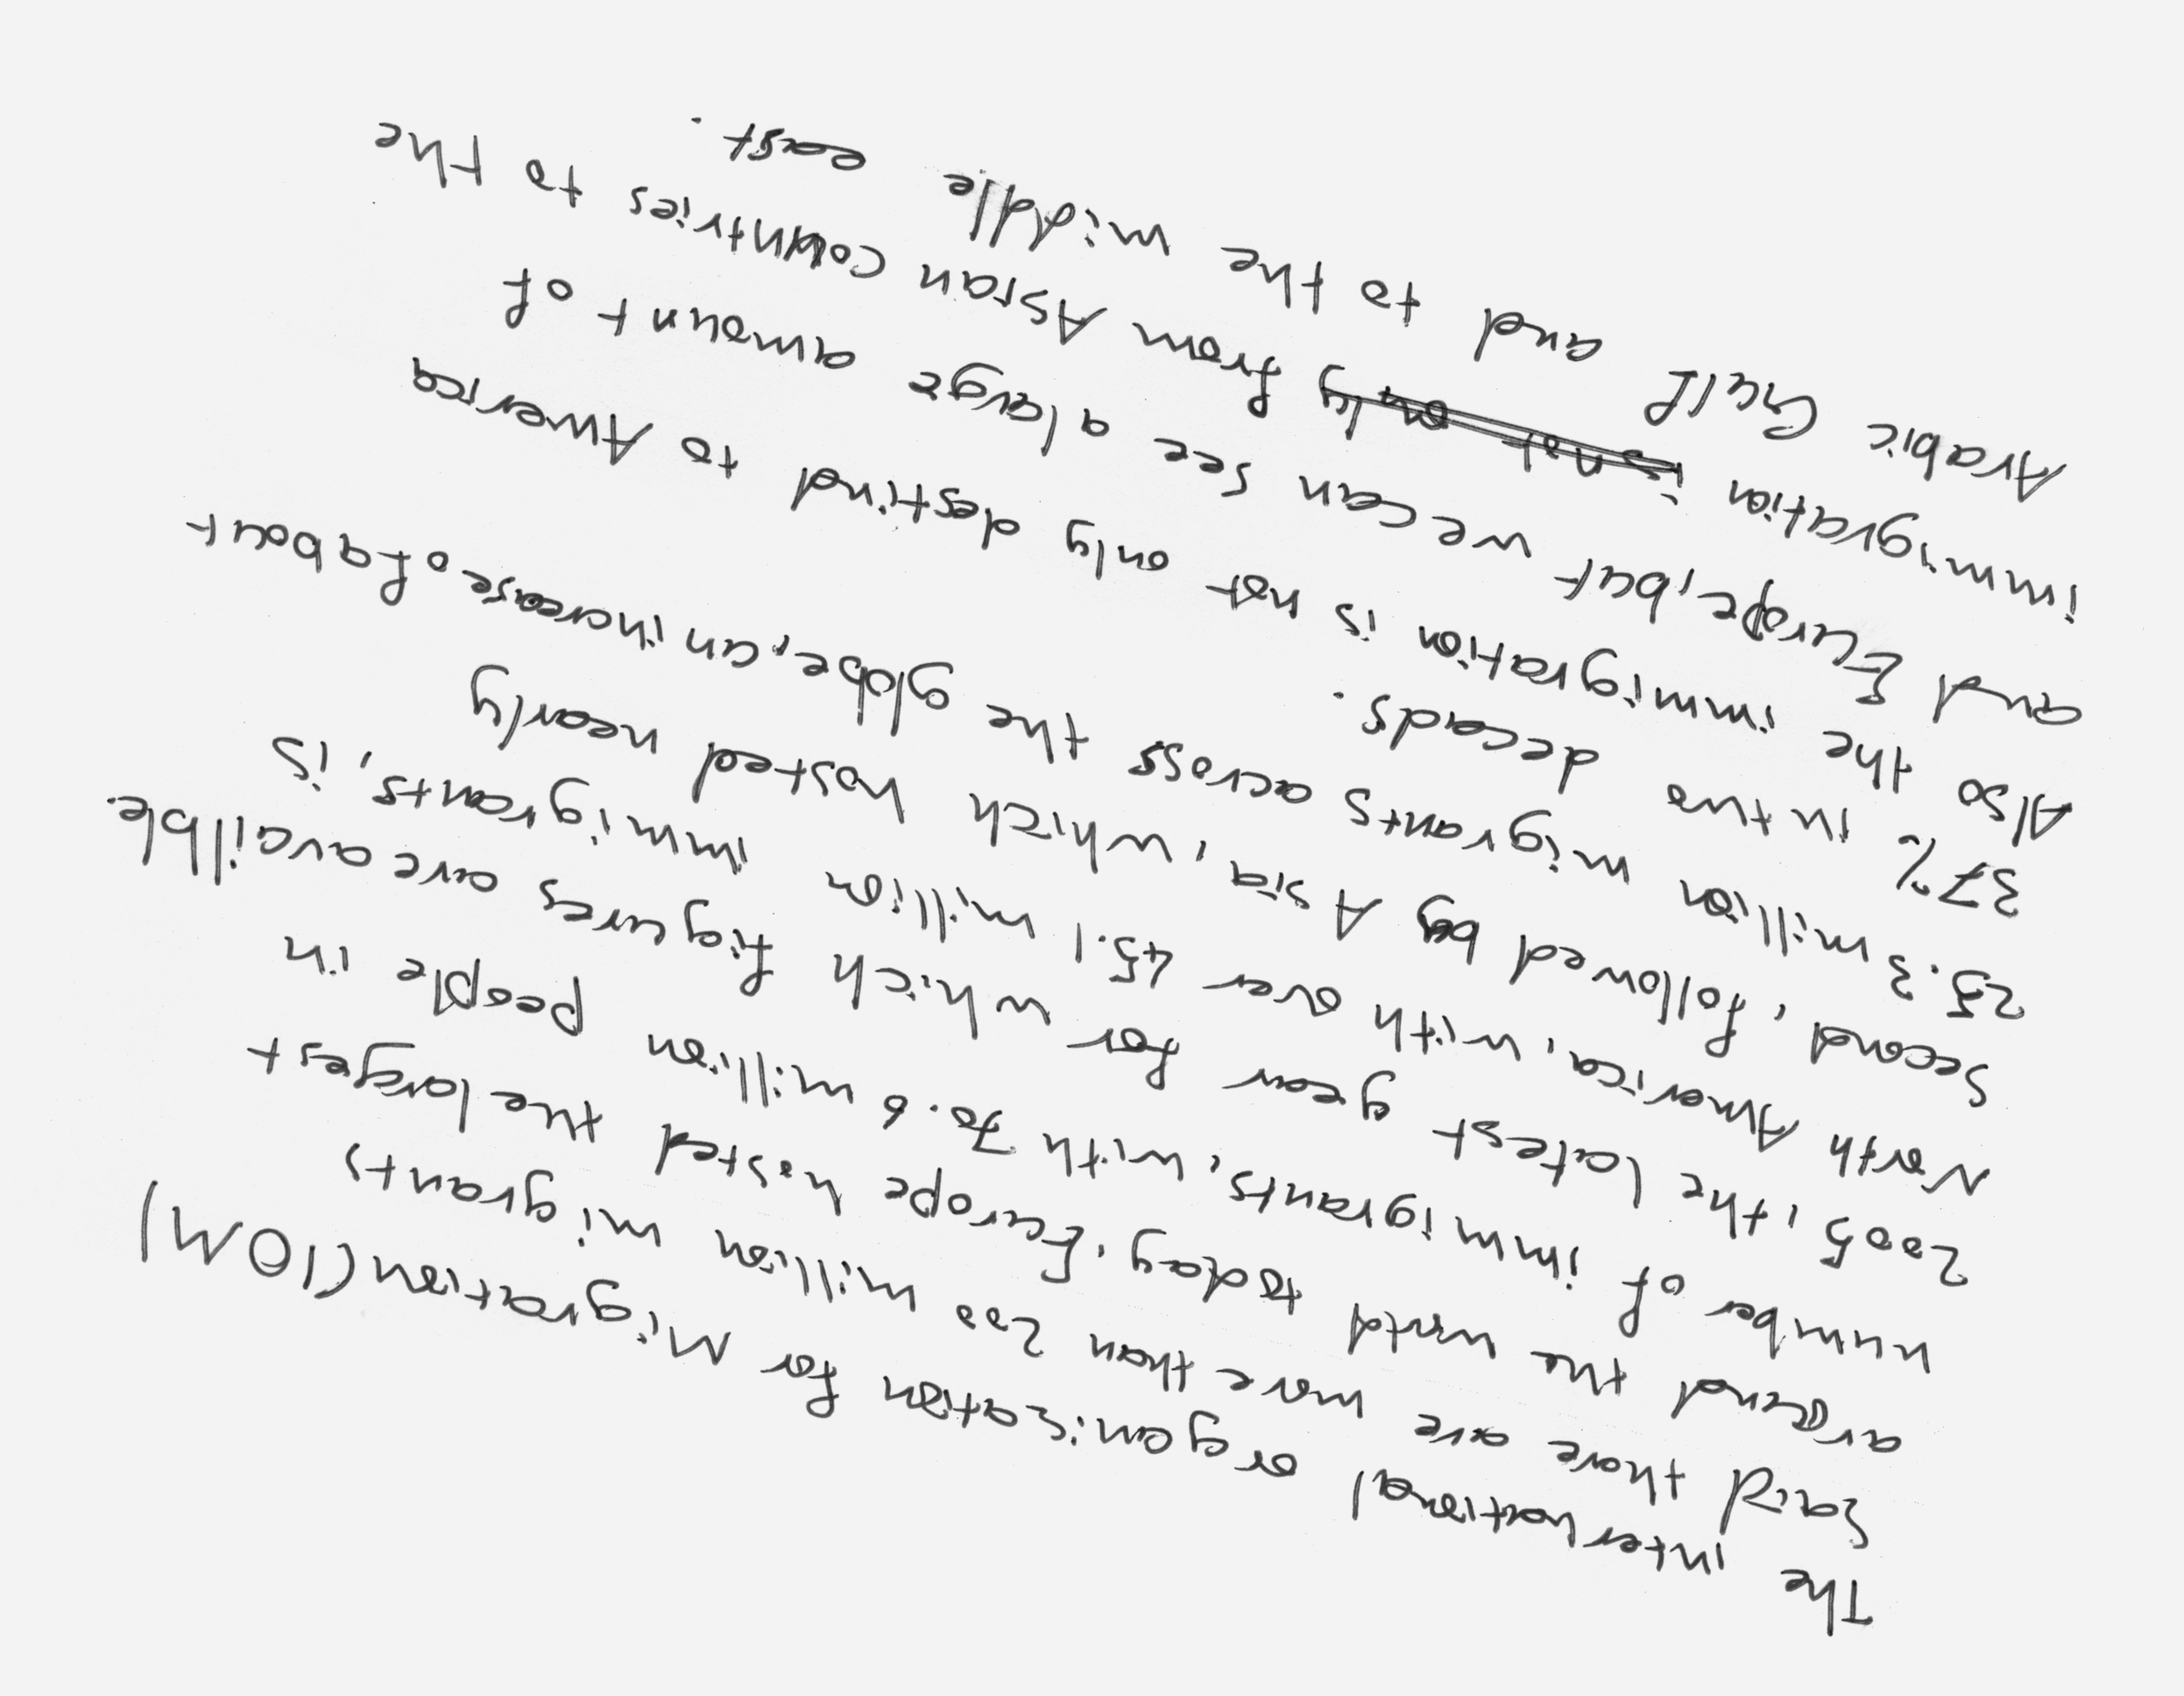 The international organization for Migration (IOM)
Said there are more than 200 million migrants
around the world today, Europe hosted the largest
number of immigrants, with 70.6 million people in
2005, the latest year for which figures are availble.
North America, with over 45.1 million immigrants, is
Second, followed by Asia, which hosted nearly
25.3 million migrants across the globe, an increase of about
37% in two decads.
Also the immigration is not only destind to America
and Europe, but we can see a large amount of
immigration is not only from Asian countries to the
Arabic Gulf and to the middle east.